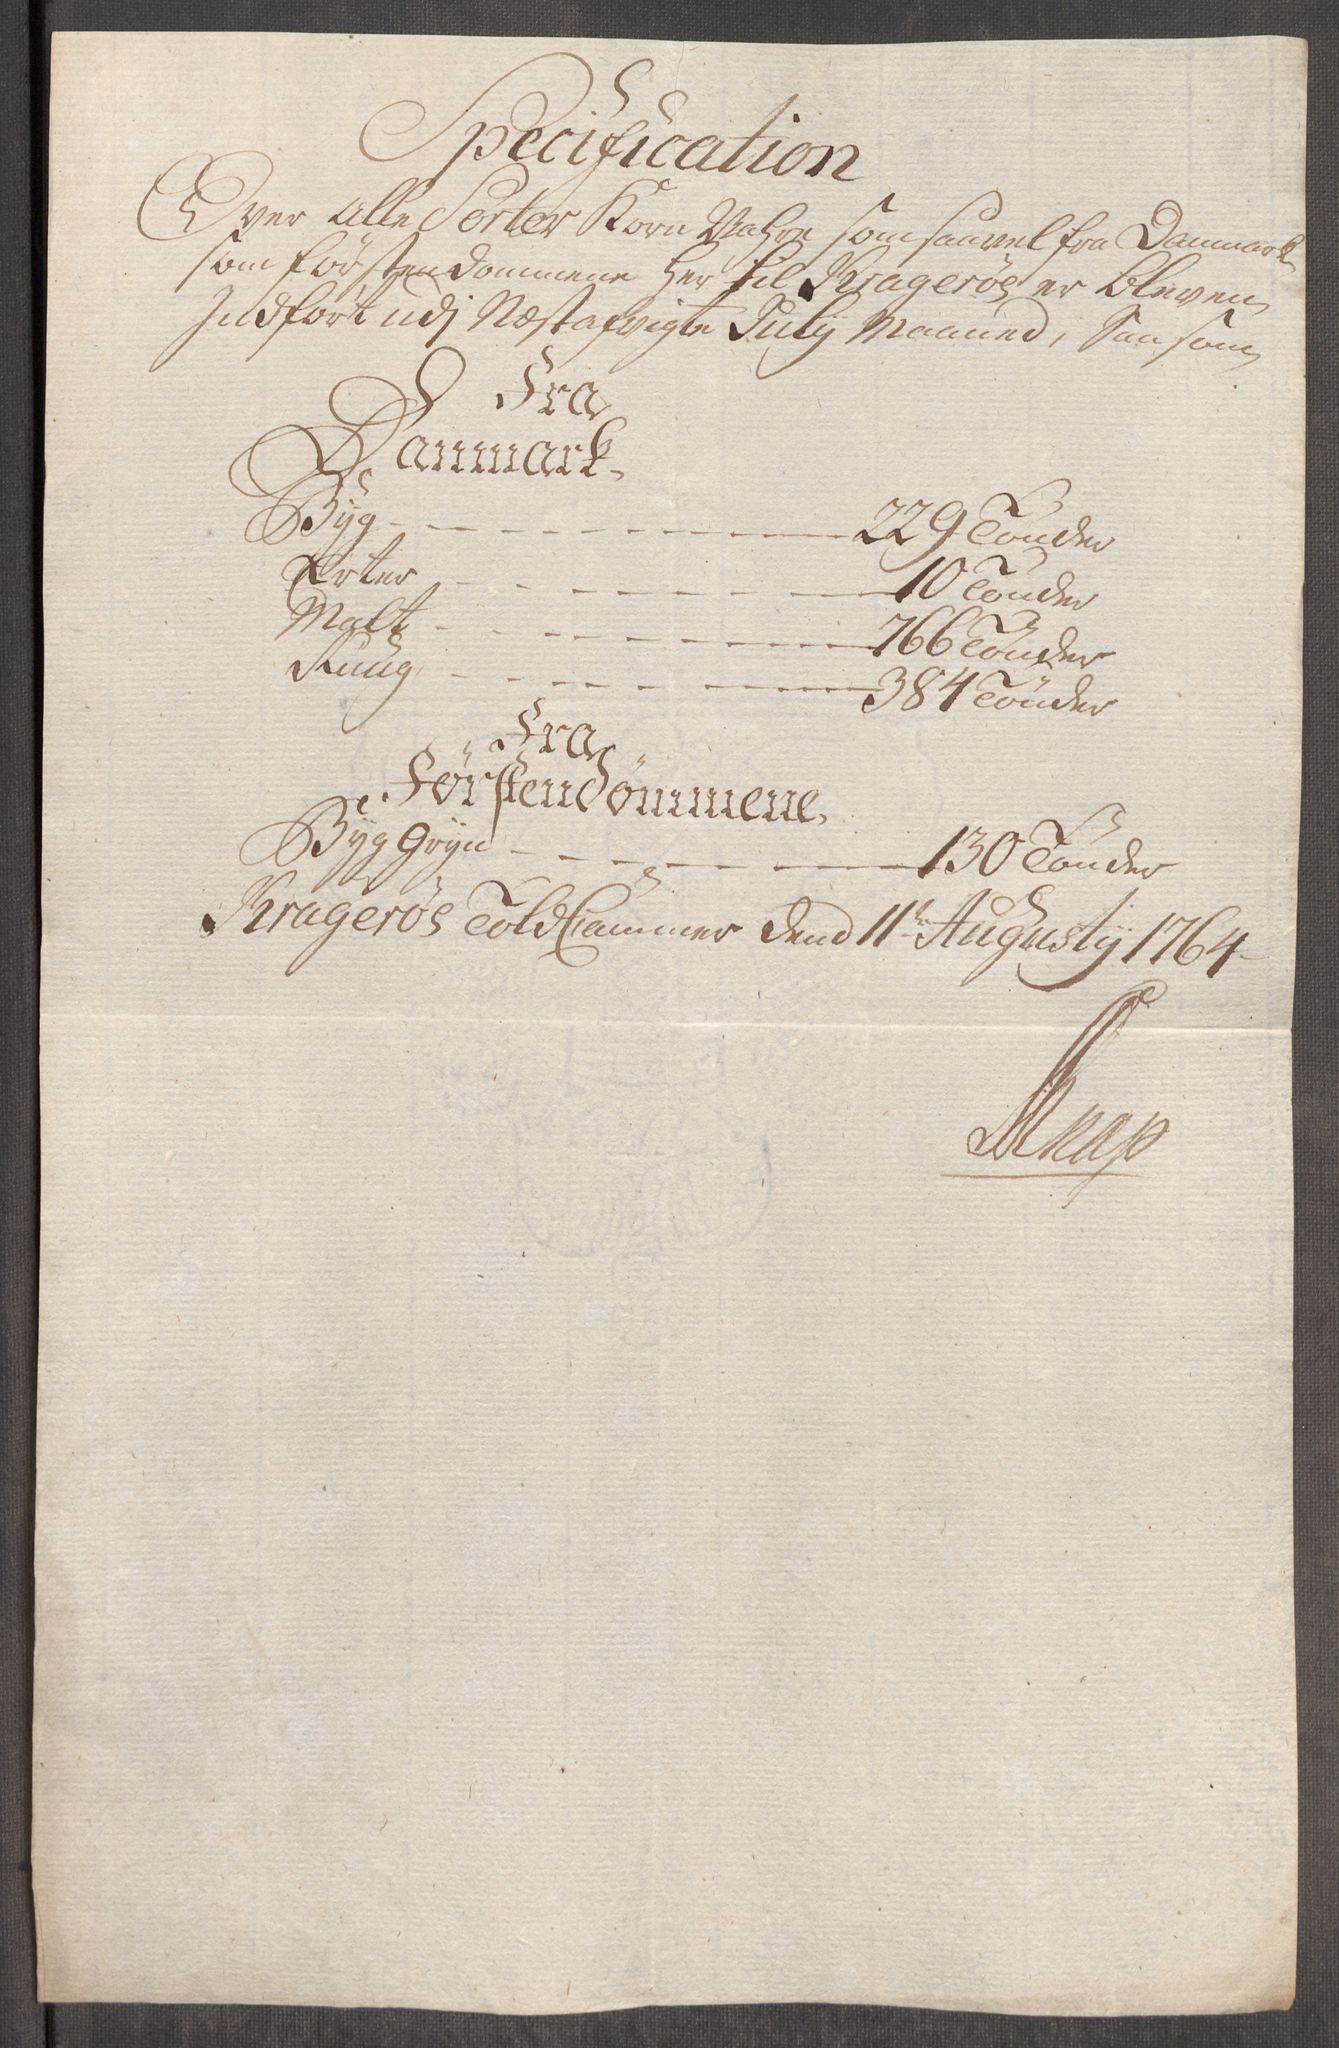 Specification
Over alle Sorter Korn Vahre som saavel fra Danmark
som förstendommene her til Kragerøe er bleven
Indfort udj Næstafvigte July Maaned, Saasom
Fra
Danmark.
Byg 229 Tönder
Erter 10 Tönder
Malt 766 Tönder
Ruug 384 Tönder
Fra
Førstendömmene.
Byg Gryn 130 Tönder
Kragerøe Told Cammer dend 11te Augustij 1764